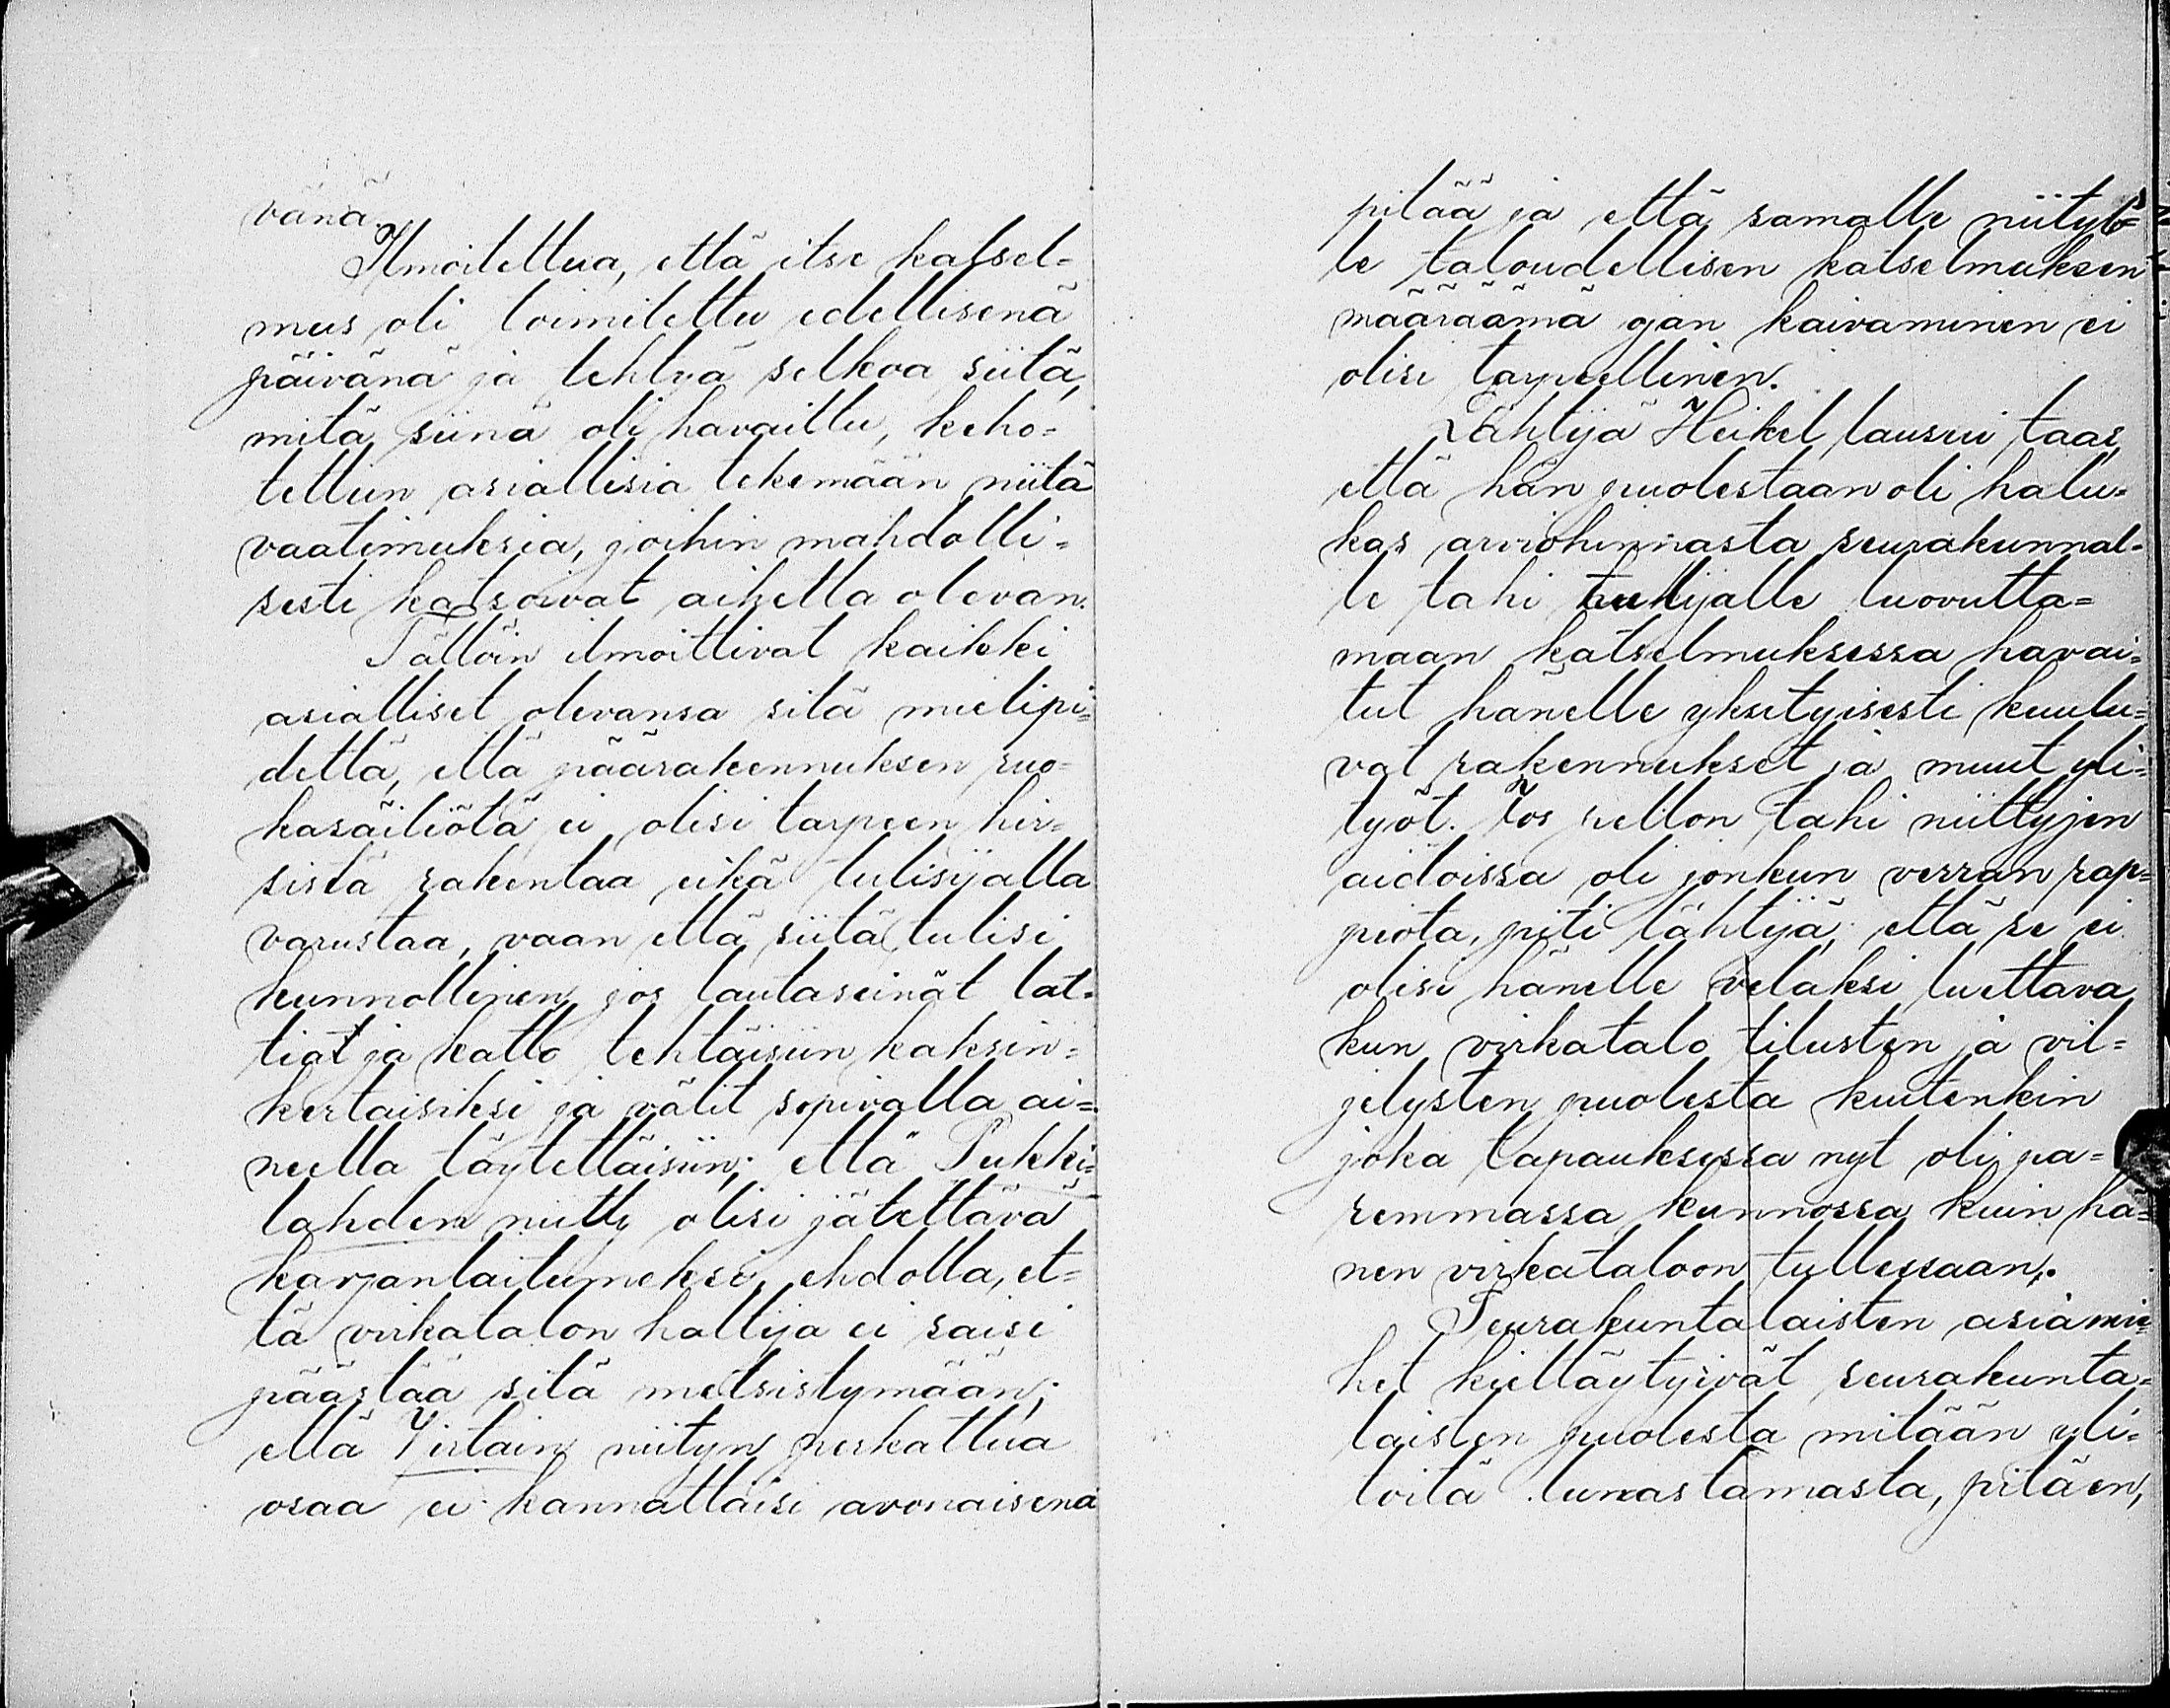 vänä.
Ilmoitettua, että itse katsel=
mus oli toimitettu edellisenä
päivänä ja tehtyä selkoa siitä,
mitä siinä oli havaittu, keho=
tettiin asiallisia tekemään niitä
vaatimuksia, joihin mahdolli=
sesti katsoivat aihetta olevan.
Tällöin ilmoittivat kaikki
asialliset olevansa sitä mielipi=
dettä, että päärakennuksen ruo=
kasäiliötä ei olisi tarpeen hir=
sistä rakentaa eikä tulisijalla
varustaa, vaan että siitä tulisi
kunnollinen jos lautaseinät lat=
tiat ja katto tehtäisiin kaksin=
kertaisiksi ja välit sopivalla ai=
neella täytettäisiin; että Pukki=
lahden niitty olisi jätettävä
karjanlaitumeksi, ehdolla, et=
tä virkatalon haltija ei saisi
päästää sitä metsistymään;
että Virtain niityn perkattua
osaa ei kannattaisi avonaisena
pitää ja että samalle niitylä=
le taloudellisen katselmuksen
määräämä ojan kaivaminen ei
olisi tarpeellinen.
Lähtijä Heikel lausui taas,
että hän puolestaan oli halu=
kas arviohinnasta seurakunnal=
le tahi tulijalle luovutta=
maan katselmuksessa havai=
tut hänelle yksityisesti kuulu=
vat rakennukset ja muut yli=
työt. Jos pellon tahi niittyjen
aidoissa oli jonkun verran rap=
piota, piti lähtijä, että se ei
olisi hänelle velaksi luettava
kun virkatalo tilusten ja vil=
jelysten puolesta kuitenkin
joka tapauksessa nyt oli pa=
remmassa kunnossa kuin hä=
nen virkataloon tullessaan.
Seurakuntalaisten asiamie=
het kieltäytyivät seurakunta=
laisten puolesta mitään yli=
töitä lunastamasta, pitäen,